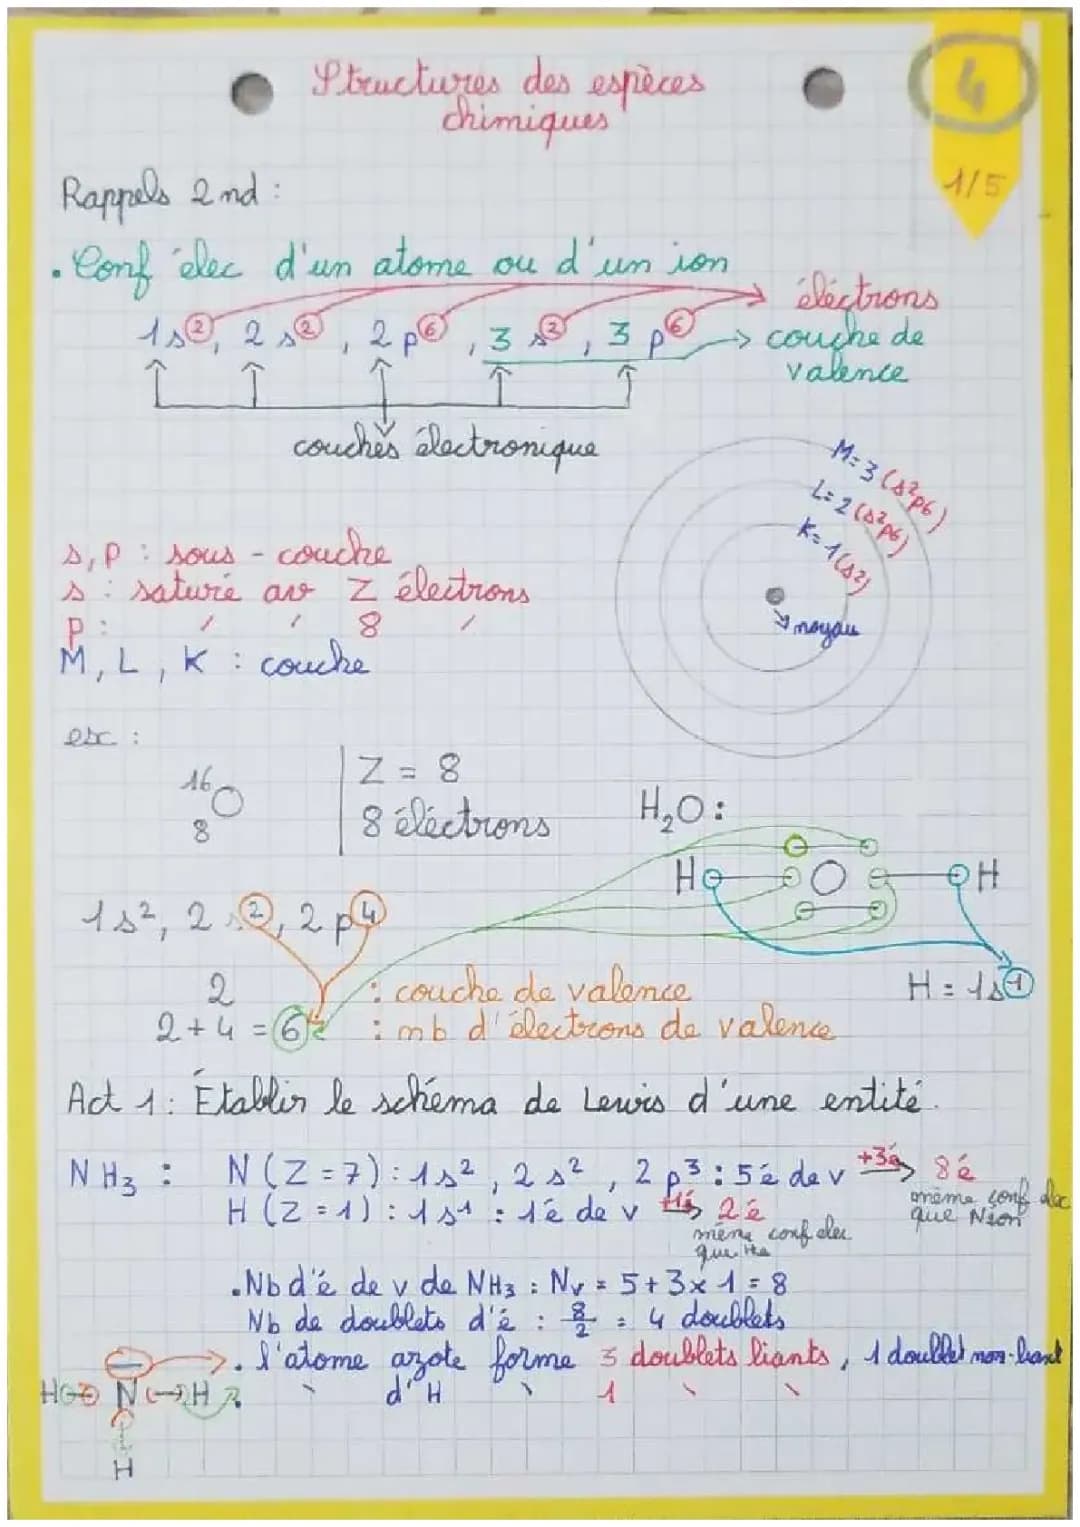 Structures des espèces
chimiques
4
1/5
Rappels 2nd :
. Conf élec d'un atome ou d'un ion
1s②, 2s②, 2p⑥, 3s②, 3p⑥
électrons
couche de
valence
couches électronique
M=3 (s²p6)
L=2 (s²p6)
K=1 (s²)
noyau
s, p : sous-couche
s : saturé av 2 électrons
p : / / 8 /
M, L, K : couche
ex :
16 O
8
Z = 8
8 électrons
H₂O :
H O H
1s², 2s②, 2p④
H = 1s①
2 : couche de valence
2+4 = 6 : nb d'électrons de valence
Act 1 : Établir le schéma de Lewis d'une entité.
NH₃ : N (Z=7) : 1s², 2s², 2p³ : 5é de v +3é → 8é
même conf elec
que Néon
H (Z=1) : 1s¹ : 1é de v +1é → 2é
même conf elec
que He
. Nb d'é de v de NH₃ : Nv = 5+3x1 = 8
Nb de doublets d'é : 8/2 = 4 doublets
. l'atome azote forme 3 doublets liants, 1 doublet non-liant
. \ d'H \ 1 \ \
H N H
H